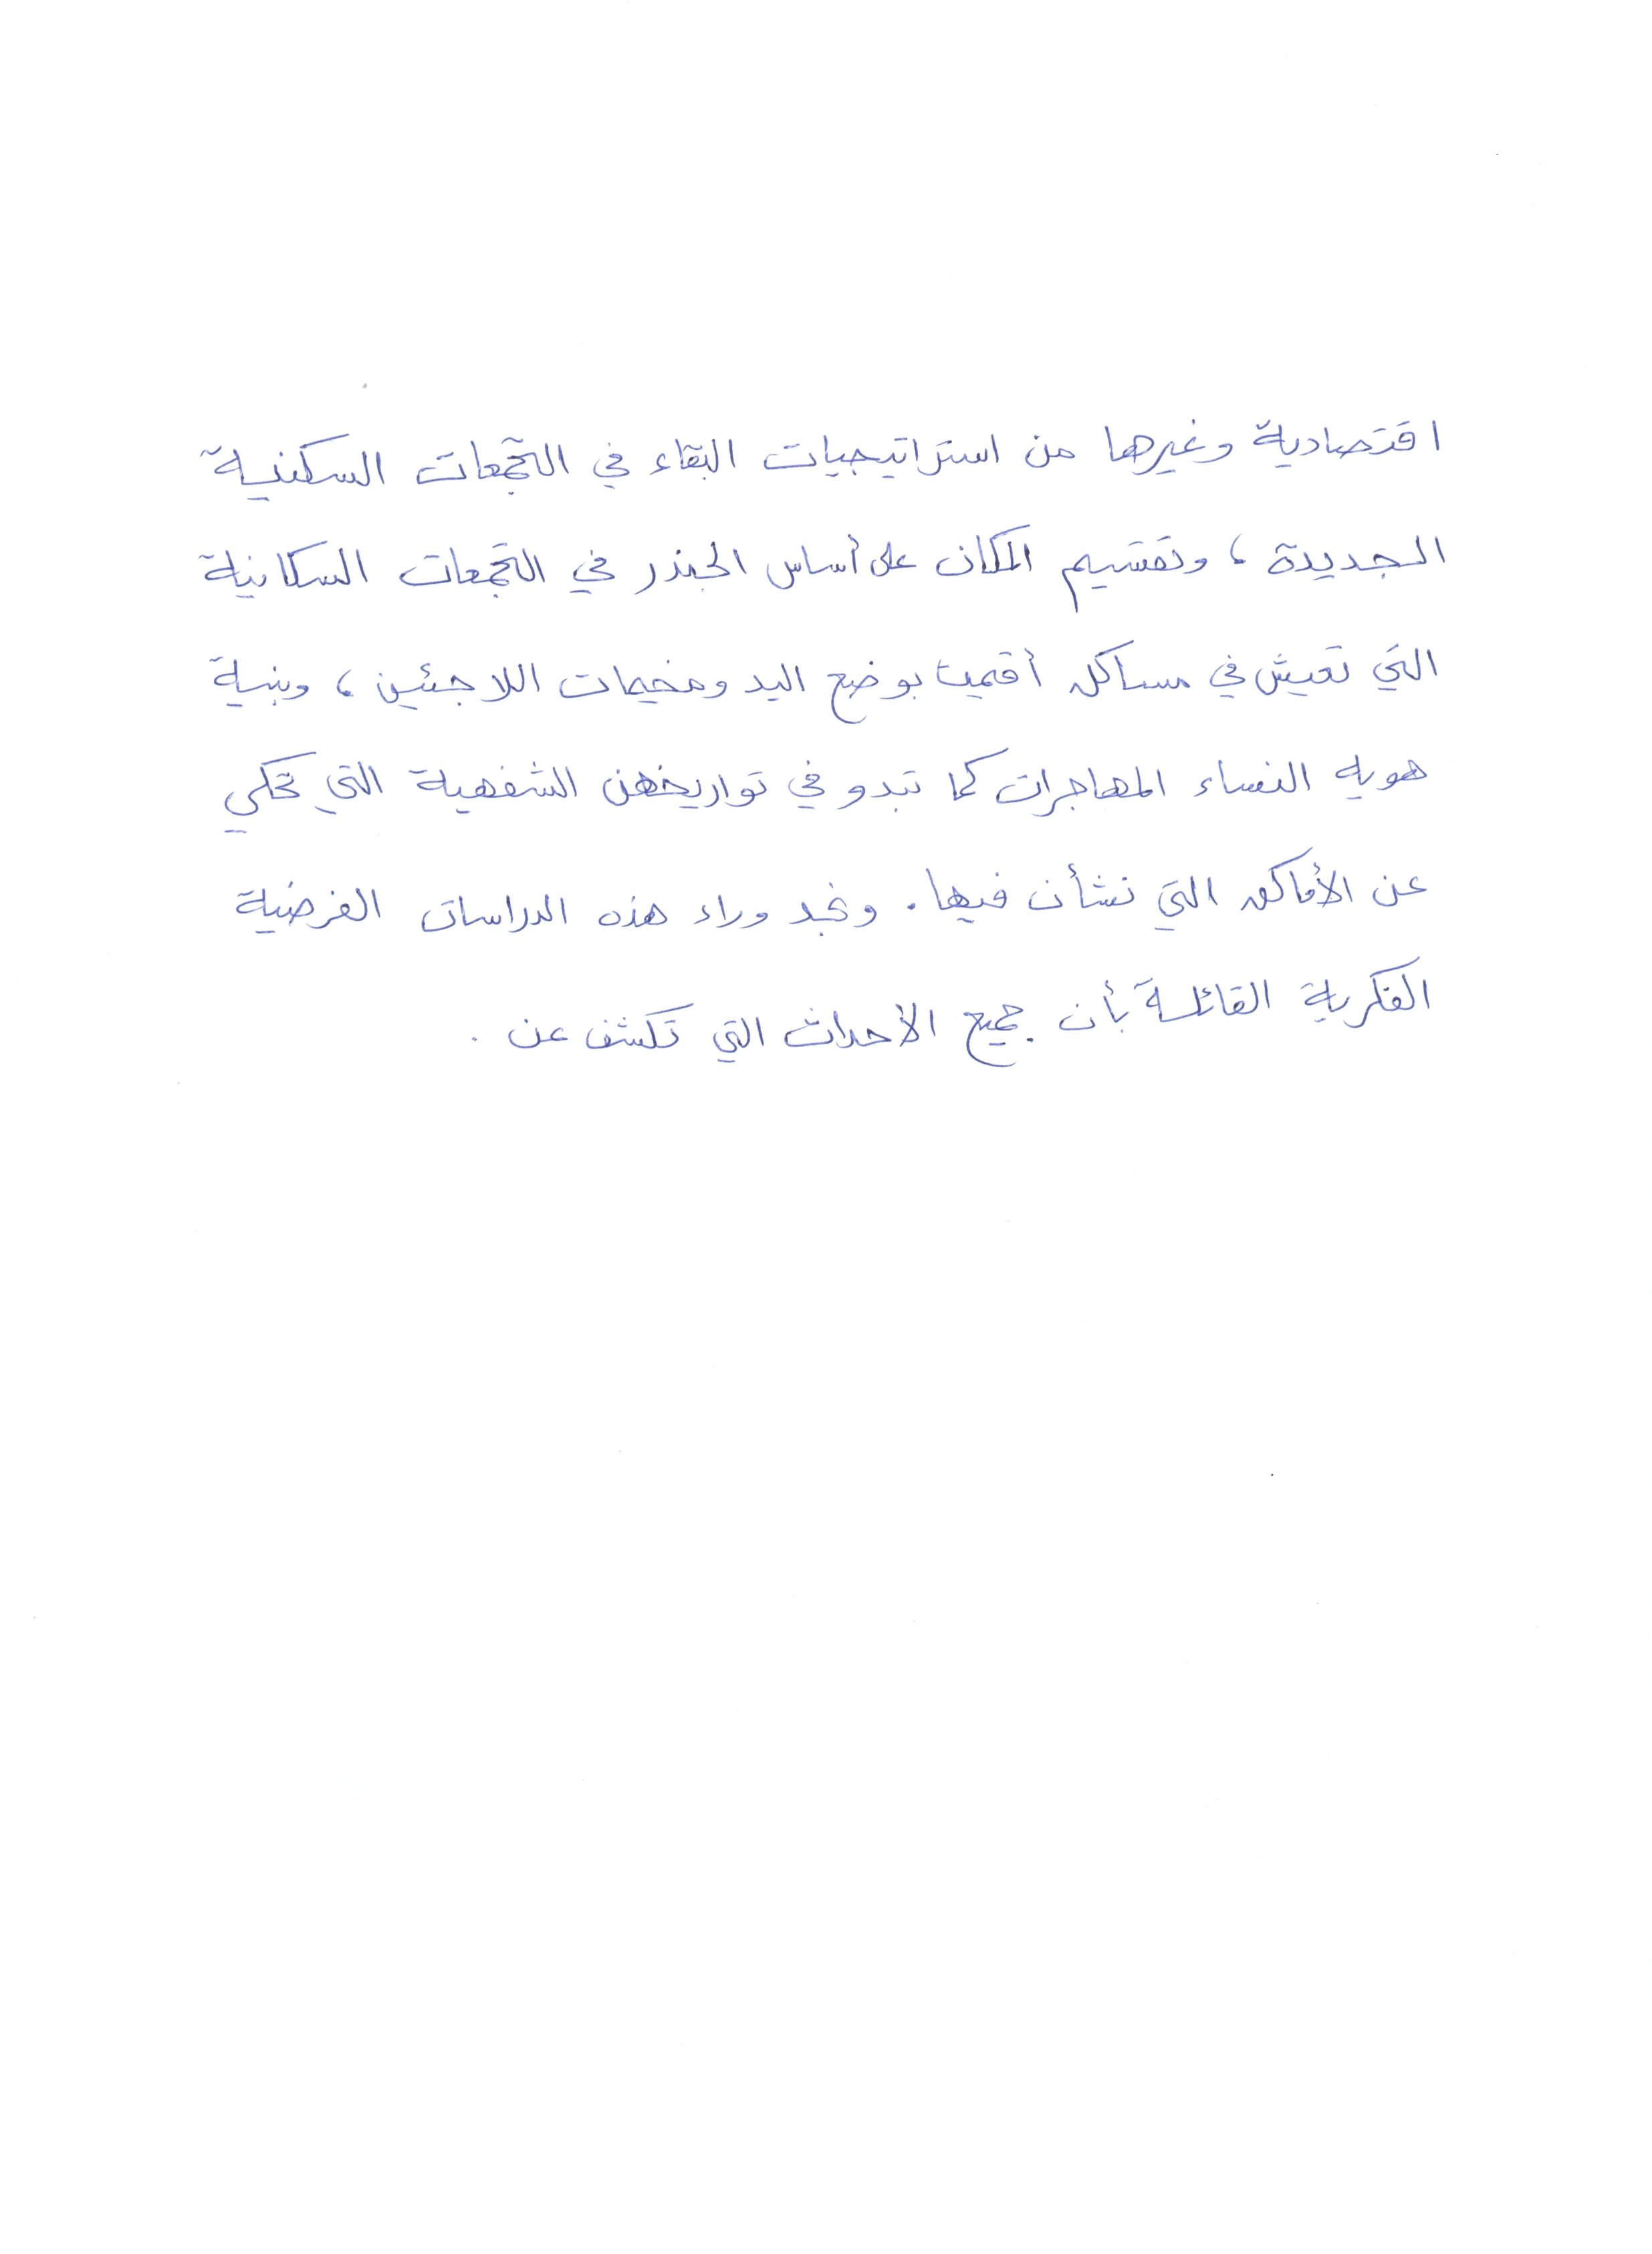 اقتصادية وغيرها من استراتيجيات البقاء في التجمعات السكنية
الجديدة ، وتقسيم المكان على أساس الجندر في التجمعات السكانية
التي تعيش في مساكن أقميت بوضع اليد ومخيمات اللاجئين ، وبنية
هويه النساء المهاجرات كما تبدو في تواريخهن الشفهية التي تحكي
عن الأماكن التي نشأن فيها . ونجد وراء هذه الدراسات الفرضية
الفكرية القائلة بأن جميع الأحداث التي تكشف عن .